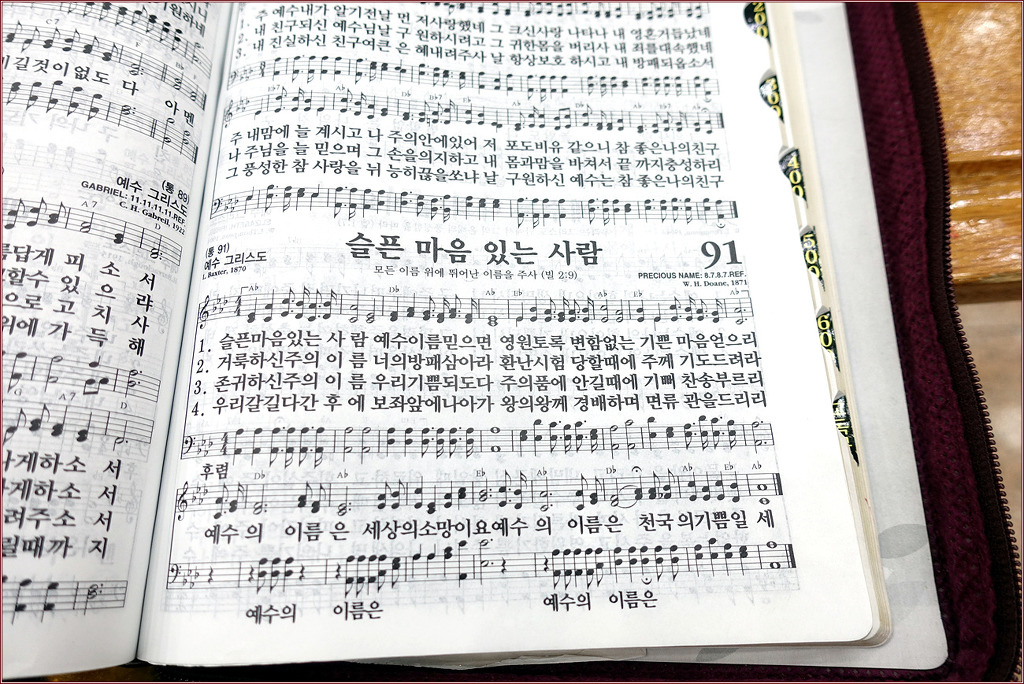 원하네
길것이없도다 아멘
(통 89)
예수 그리스도
GABRIEL: 11.11.11.11.REF.
C. H. Gabriel, 1922
A7 D
름답게 피 소 서
할수 있 으 라
으로 고 치 사
위에 가 득 해
G A7 D
나게하소 서
나게하소 서
려주소 서
릴때까 지
1. 주 예수내가 알기전날 먼 저사랑했네 그 크신사랑 나타나 내 영혼거듭났네
2. 내 친구되신 예수님날 구 원하시려고 그 귀한몸을 버리사 내 죄를대속했네
3. 내 진실하신 친구여큰 은 혜내려주사 날 항상보호 하시고 내 방패되옵소서
주 내맘에 늘 계시고 나 주의안에있어 저 포도비유 같으니 참 좋은나의친구
나 주님을 늘 믿으며 그 손을의지하고 내 몸과맘을 바쳐서 끝 까지충성하리
그 풍성한 참 사랑을 뉘 능히끊을쏘냐 날 구원하신 예수는 참 좋은나의친구
(통 91)
예수 그리스도
L. Baxter, 1870
슬픈 마음 있는 사람
모든 이름 위에 뛰어난 이름을 주사 (빌 2:9)
91
PRECIOUS NAME: 8.7.8.7.REF.
W. H. Doane, 1871
A♭ D♭ A♭ E♭ A♭ E♭ A♭
1. 슬픈마음있는 사 람 예수이름믿으면 영원토록 변함없는 기쁜 마음얻으리
2. 거룩하신주의 이 름 너의방패삼아라 환난시험 당할때에 주께 기도드려라
3. 존귀하신주의 이 름 우리기쁨되도다 주의품에 안길때에 기뻐 찬송부르리
4. 우리갈길다간 후 에 보좌앞에나아가 왕의왕께 경배하며 면류 관을드리리
후렴
D♭ A♭ E♭ A♭ D♭ A♭ E♭ A♭
예수 의 이름 은 세상의소망이요예수 의 이름 은 천국의기쁨일 세
예수의 이름은 예수의 이름은
200
300
400
500
60